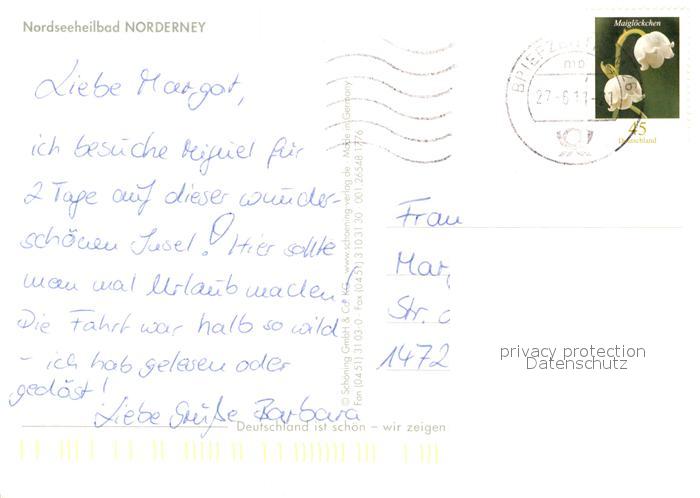 Nordseeheilbad NORDERNEY
Liebe Margot,
ich besuche Miguel für
2 Tage auf dieser wunder-
schönen Insel! Hier sollte
man mal Urlaub machen!
Die Fahrt war halb so wild
- ich hab gelesen oder
gedöst!
Liebe Grüße Barbara
Deutschland ist schön – wir zeigen
© Schöning GmbH & Co. KG · www.schoening-verlag.de · Made in Germany
Fon (0451) 31 03-0 · Fax (0451) 3 10 31 30 001 26548 1776
BRIEFZENTRUM
27-6.11-21
Maiglöckchen
45
Deutschland
Frau
Mar
Str.
1472
privacy protection
Datenschutz